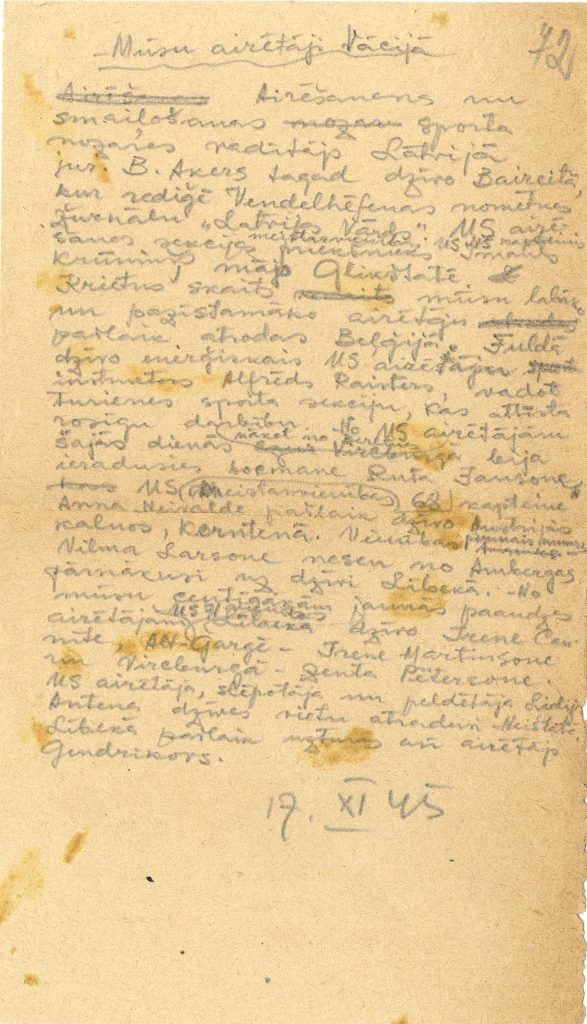 72
Mūsu airētāji Vācijā
Airēšanas Airēšanena un
smaiļošanas nozares sporta
nozares radītājs Latvijā
jur. B. Akers tagad dzīvo Baireitā,
kur rediģē Vendelhēfenas nometnes
žurnālu „Latvijas Vārds". US airē-
šanas sekcijas priekšnieks
meistarsvienības US 45 kapteinis
Krūmiņš, mājo Glikstatē
Krietns skaits mūsu labāko
un pazīstamāko airētāju
patlaik atrodas Beļģijā. Fuldā
dzīvo enerģiskais US airētāju
instruktors Alfrēds Raisters, vadot
turienes sporta sekciju, kas attīsta
rosīgu darbību. No US airētājām
šajās dienās nākot no Vircburgā bija
ieradusies bocmane Ruta Jansone,
US meistarsvienības 68 kapteine
Anna Neivalde patlaik dzīvo Austrijas
kalnos, Kerntenā. Vienības
Vilma Larsone nesen no Ambergas
pārnākusi uz dzīvi Lībekā. No
mūsu centīgākām jaunās paaudzes
airētājām Lībekā dzīvo Irene Cau-
nīte, Alt-Gargē - Irene Martinsone
un Vircburgā - Zenta Pētersone.
US airētāja, slēpotāja un peldētāja Lidija
Antena dzīves vietu atradusi Neištatē
Lībekā patlaik uzturas arī airētājs
Gendrikovs.
17. XI 45